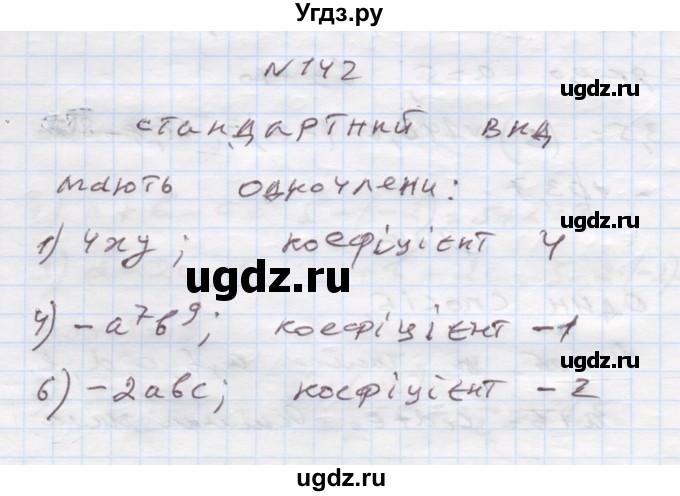 Угдз.ру
N142
ugdz.ru
стандартний вид
мають одночлени:
ugdz.ru
1) 4xy; коефіцієнт 4
ugdz.ru
4) -a⁷b⁹; коефіцієнт -1
6) -2abc; коефіцієнт -2
ugdz.ru
ugdz.ru
ugdz.ru